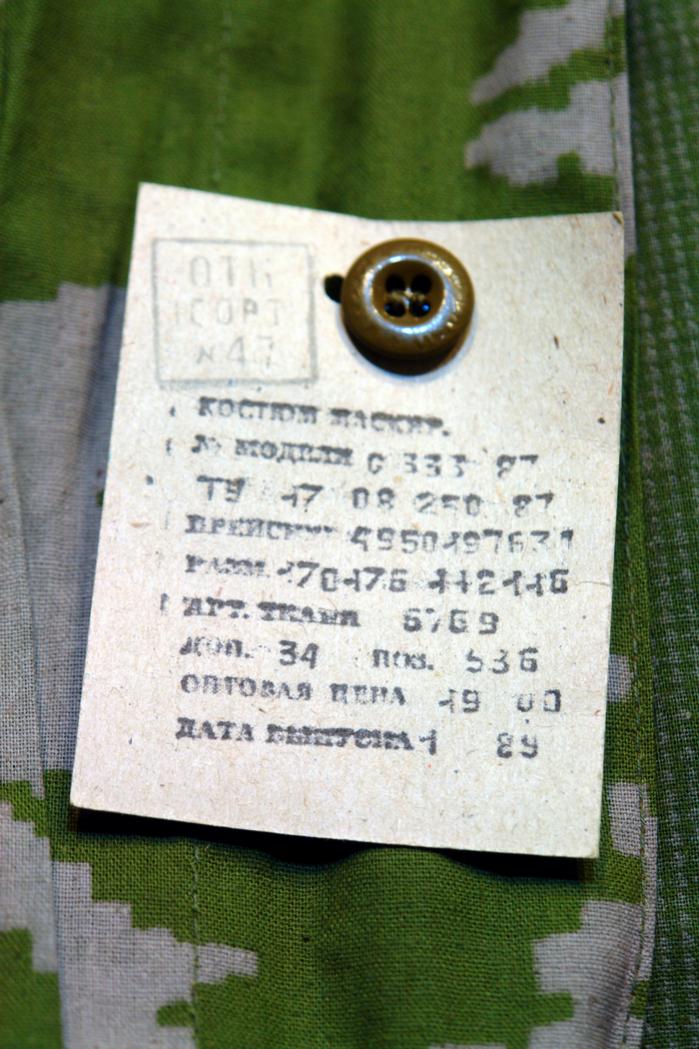 ОТК
1 СОРТ
N 47
КОСТЮМ МАСКИР.
№ МОДЕЛИ С 333 87
ТУ 17 08 250 87
ПРЕЙСКУР
РАЗМ. 170-176 112-116
АРТ. ТКАНИ 6769
ДОП. 34 ПОЗ. 536
ОПТОВАЯ ЦЕНА 19 00
ДАТА ВЫПУСКА 1 89